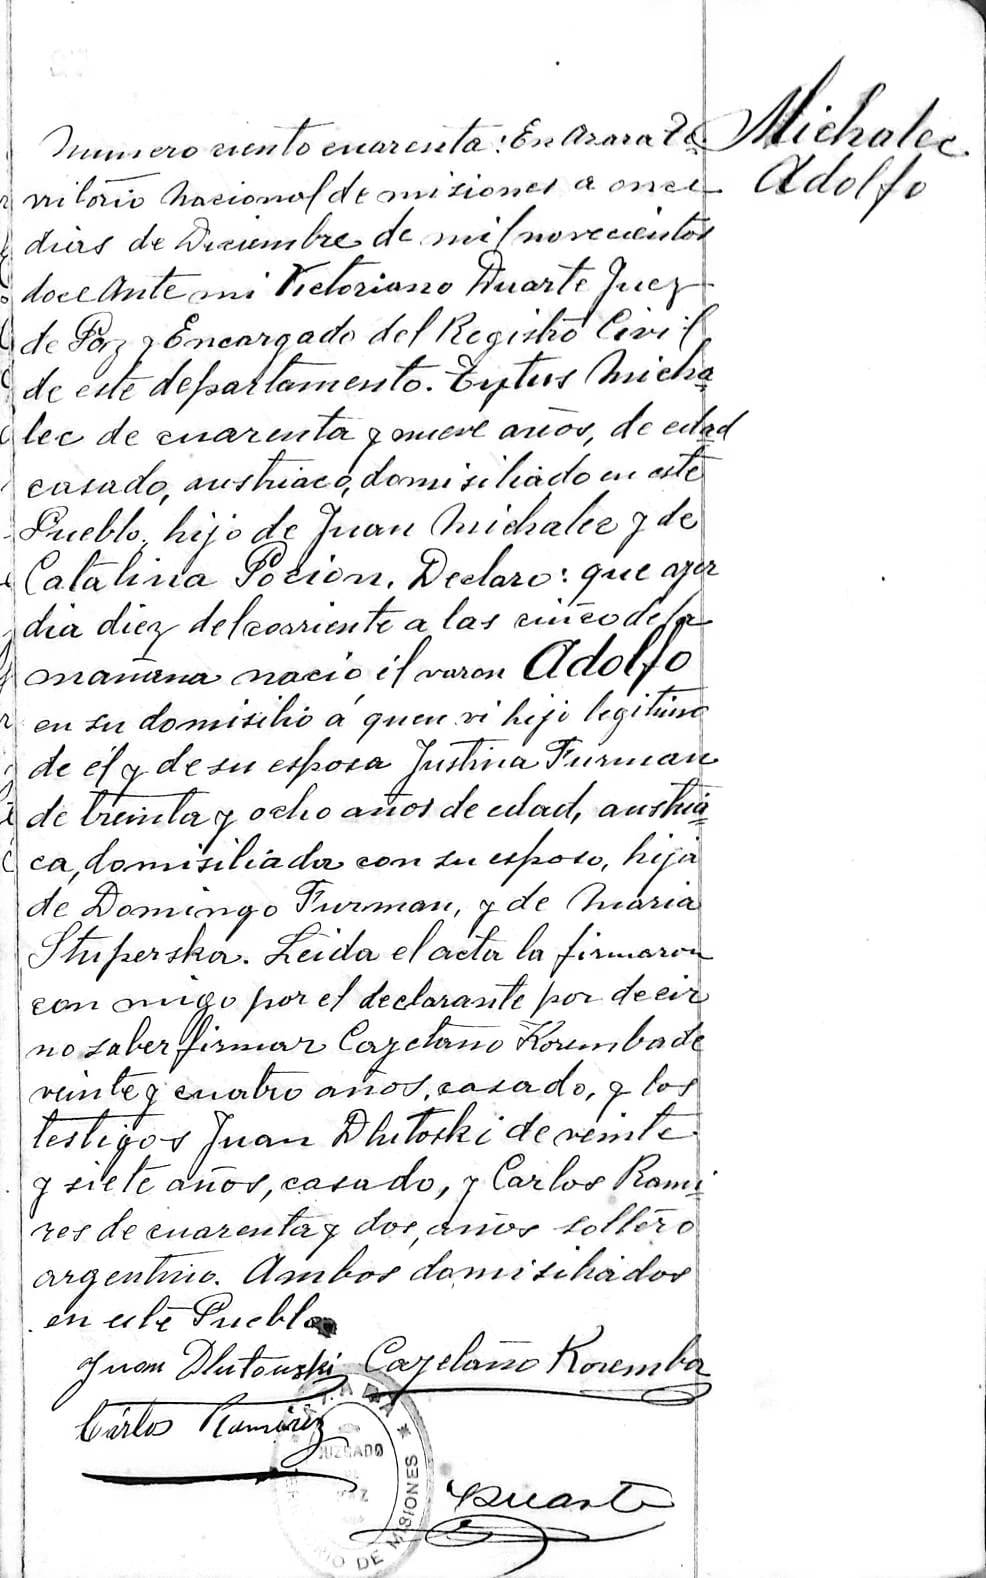 Michalec
Adolfo
Numero ciento cuarenta: En Azara Te-
rritorio Nacional de Misiones a once
dias de Diciembre de mil novecientos
doce Ante mi Victoriano Duarte Juez
de Paz y Encargado del Registro Civil
de este departamento. Tytus Micha
lec de cuarenta y nueve años, de edad
casado, austriaco, domisiliado en este
Pueblo, hijo de Juan Michalec y de
Catalina Pocion. Declaro: que ayer
dia diez del corriente a las cinco de la
mañana nacio el varon Adolfo
en su domisilio á quen vi hijo legitimo
de él y de su esposa Justina Furman
de treinta y ocho años de edad, austria
ca, domisiliada con su esposo, hija
de Domingo Furman, y de Maria
Stuperska. Leida el acta la firmaron
con migo por el declarante por decir
no saber firmar Cayetano Koremba de
veinte y cuatro años, casado, y los
testigos Juan Dlutoski de veinte
y siete años, casado, y Carlos Rami
res de cuarenta y dos, años soltero
argentino. Ambos domisiliados
en este Pueblo
Juan Dlutouski Cayetano Koremba
Carlos Ramirez
JUZGADO
DE MISIONES
Duarte